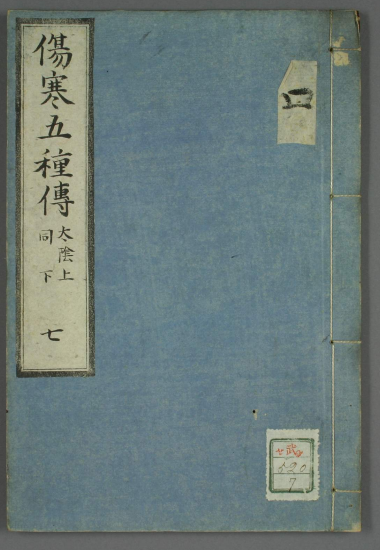 傷寒五種傳
太陰上
同 下
七
四
武
520
7